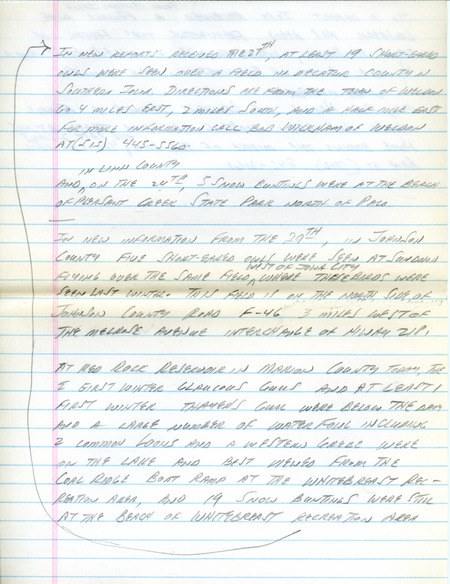 In new reports received the 27th, at least 19 short-eared
owls were seen over a field in Decatur County in
Southern Iowa. Directions are from the town of Weldon
go 4 miles east, 2 miles south, and a half mile east
For more information call Bob Wickham of Weldon
at (515) 445-5560.
in Linn County
And, on the 24th, 5 Snow Buntings were at the beach
of Pleasant Creek State Park north of Palo
In new information from the 29th, in Johnson
County five short-eared owls were seen at sundown
west of Iowa City
flying over the same field, where the birds were
seen last winter. This field is on the north side of
Johnson County Road F-46 3 miles west of
the Melrose Avenue interchange of Hiway 218.
At Red Rock Reservoir in Marion County today, the
first winter Glaucous Gulls and at least 1
first winter Thayer's Gull were below the dam
and a large number of waterfowl including
2 Common Loons and a Western Grebe were
on the lake and best viewed from the
Coal Ridge Boat Ramp at the Whitebreast Rec-
reation Area, and 19 Snow Buntings were still
at the beach of Whitebreast Recreation Area